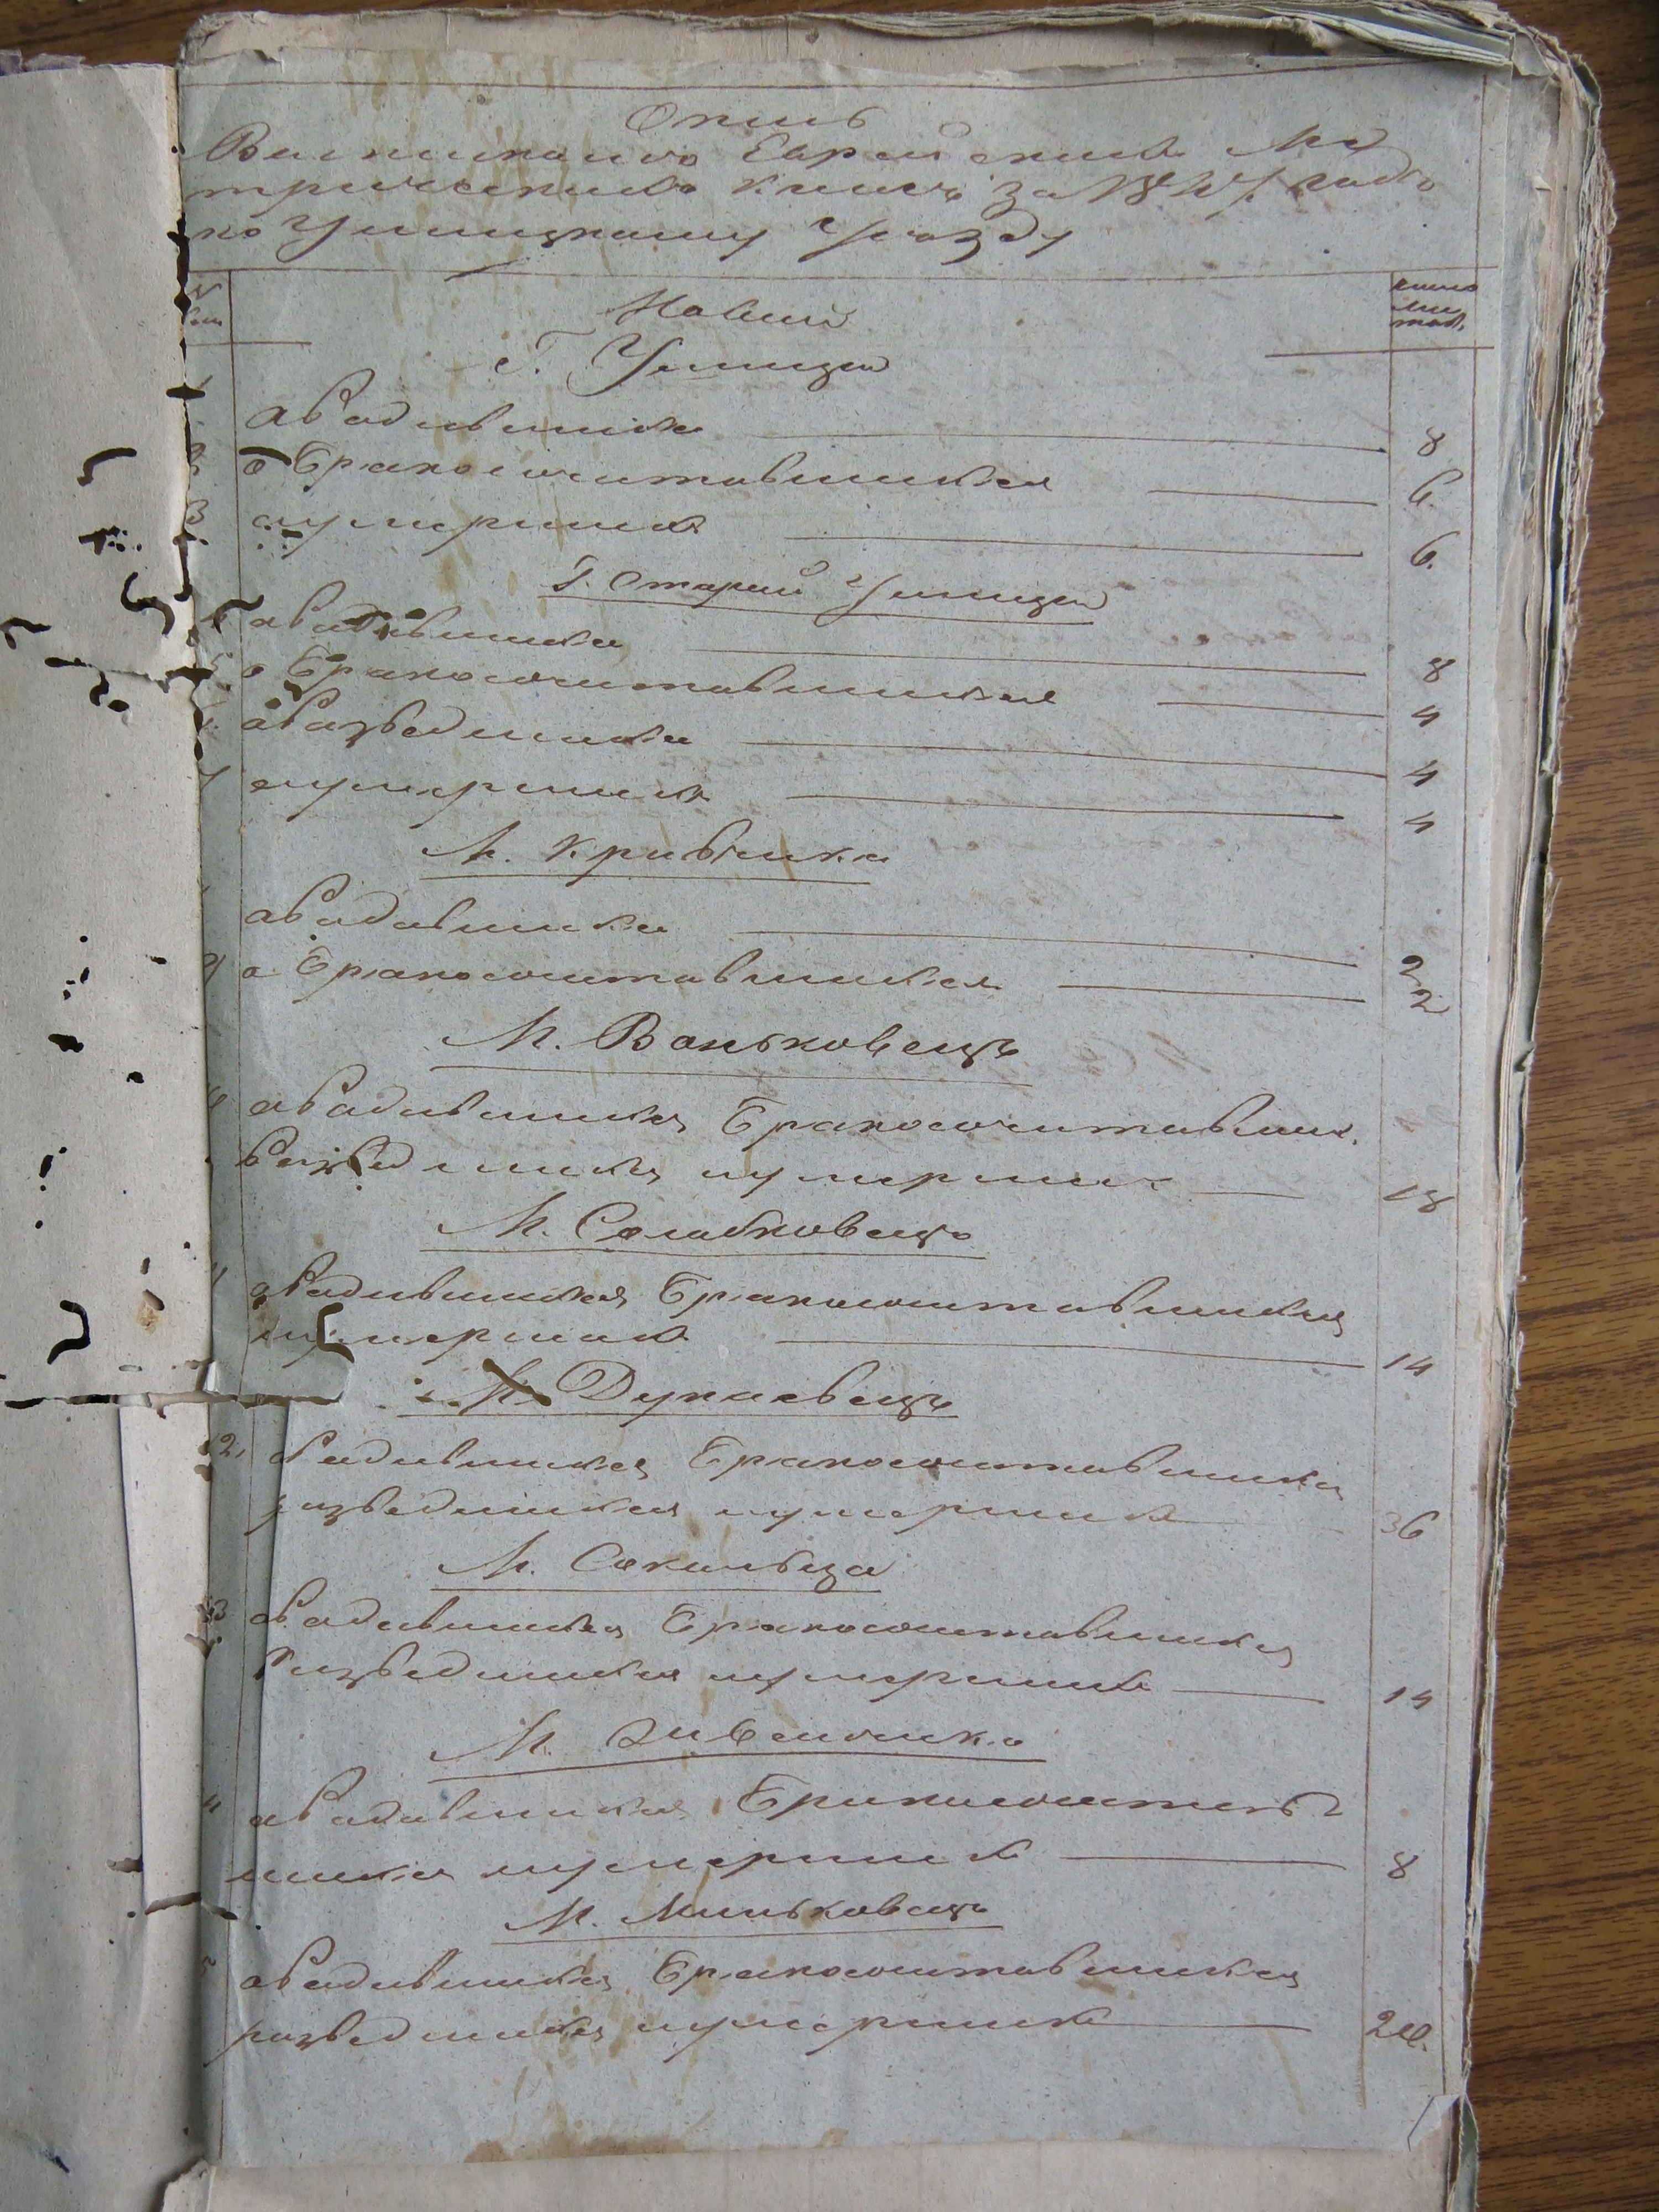 Опись
Еврейскимъ Ме
трическимъ книгъ за годъ
по Ушицкому Уезду
№
число
лис
товъ
Новый
Г. Ушица
1
о Родившихся 8
2 о Бракосочитавшихся 6.
3 о умершихъ 6.
Г. Старая Ушица
о Родившихся 8
5 о Бракосочитавшихся 4
о Разведшихся 4
7 о умершихъ 4
М. Кривчика
о Родившихся 2
9 о Бракосочитавшихся 2
М. Воньковецъ
о Родившихся Бракосочитавших.
Разведшихся и умерших 18
М. Солобковецъ
о Родившихся Бракосочитавшихся
и умершихъ 14
М. Дунаевецъ
12. о Родившихся Бракосочитавшихся
разведшихся и умершихъ 36
М. Сокильца
13 о Родившихся Бракосочитавшихся
Разведшихся и умершихъ 14
М.
о Родившихся Бракосочитав
шихся и умершихъ 8
М. Миньковецъ
о Родившихся Бракосочитавшихся
разведшихся и умершихъ